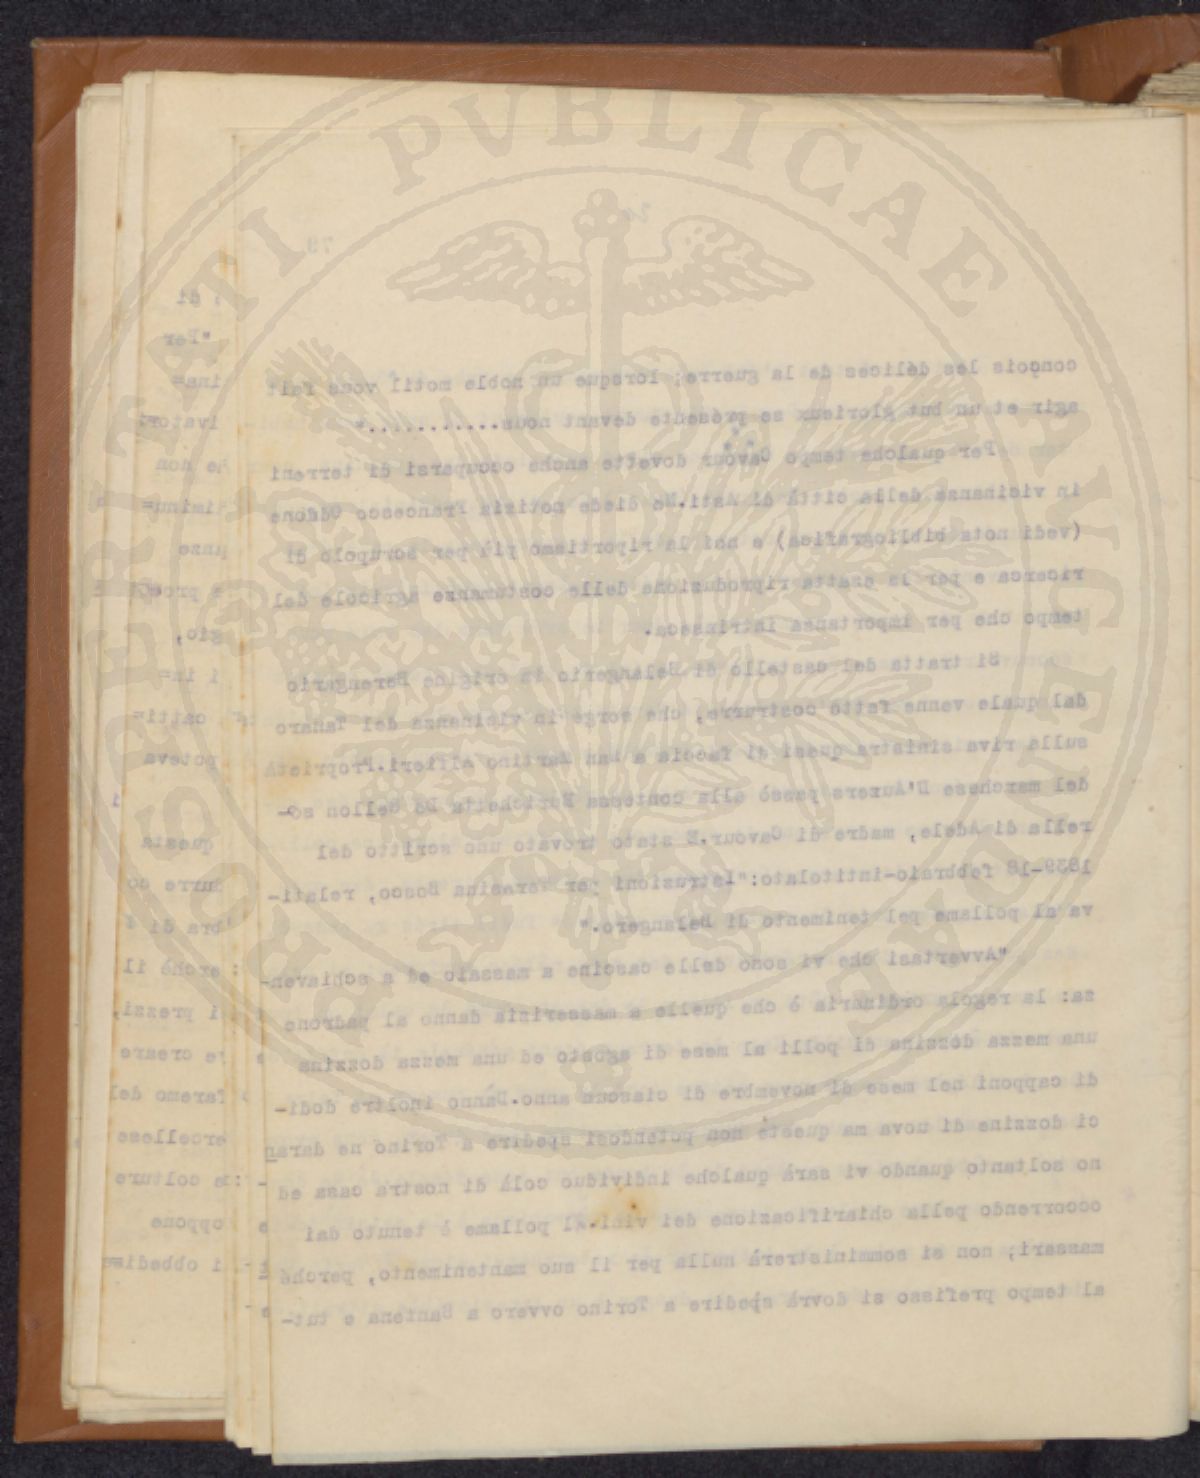 79
conçois les délices de la guerre; lorsque un noble motif vous fait
agir et un but glorieux se présente devant nous............"
Per qualche tempo Cavour dovette anche occuparsi di terreni
in vicinanza della città di Asti.Ne diede notizia Francesco Oddone
(vedi nota bibliografica) e noi la riportiamo più per scrupolo di
ricerca e per la esatta riproduzione delle costumanze agricole del
tempo che per importanza intrinseca.
Si tratta del castello di Belangerio in origine Berengario
dal quale venne fatto costrurre, che sorge in vicinanza del Tanaro
sulla riva sinistra quasi di faccia a San Martino Alfieri.Proprietà
del marchese D'Auzers passò alla contessa Enrichetta De Sellon so-
rella di Adele, madre di Cavour.E stato trovato uno scritto del
1839-18 febbraio-intitolato:"Istruzioni per Terasina Bosco, relati-
va al pollame pel tenimento di Belangero."
"Avvertasi che vi sono delle cascine a massaio ed a schiaven-
za: la regola ordinaria è che quelle a masserizia danno al padrone
una mezza dozzina di polli al mese di agosto ed una mezza dozzina
di capponi nel mese di novembre di ciascun anno.Dànno inoltre dodi-
ci dozzine di uova ma queste non potendosi spedire a Torino ne daran
no soltanto quando vi sarà qualche individuo colà di nostra casa ed
occorrendo pella chiarificazione dei vini.Al pollame è tenuto dai
massari; non si somministrerà nulla per il suo mantenimento, perché
al tempo prefisso si dovrà spedire a Torino ovvero a Santena e tut-
di
"Per
ina=
ivator
he non
iminu=
gio,
i in=
catti=
poteva
questa
durre
bra di
erchè il
i prezzi,
e creare
faremo del
ercellese
e colture
oppone
i obbedi=
PROSPERITATI PUBLICAE AUGENDAE